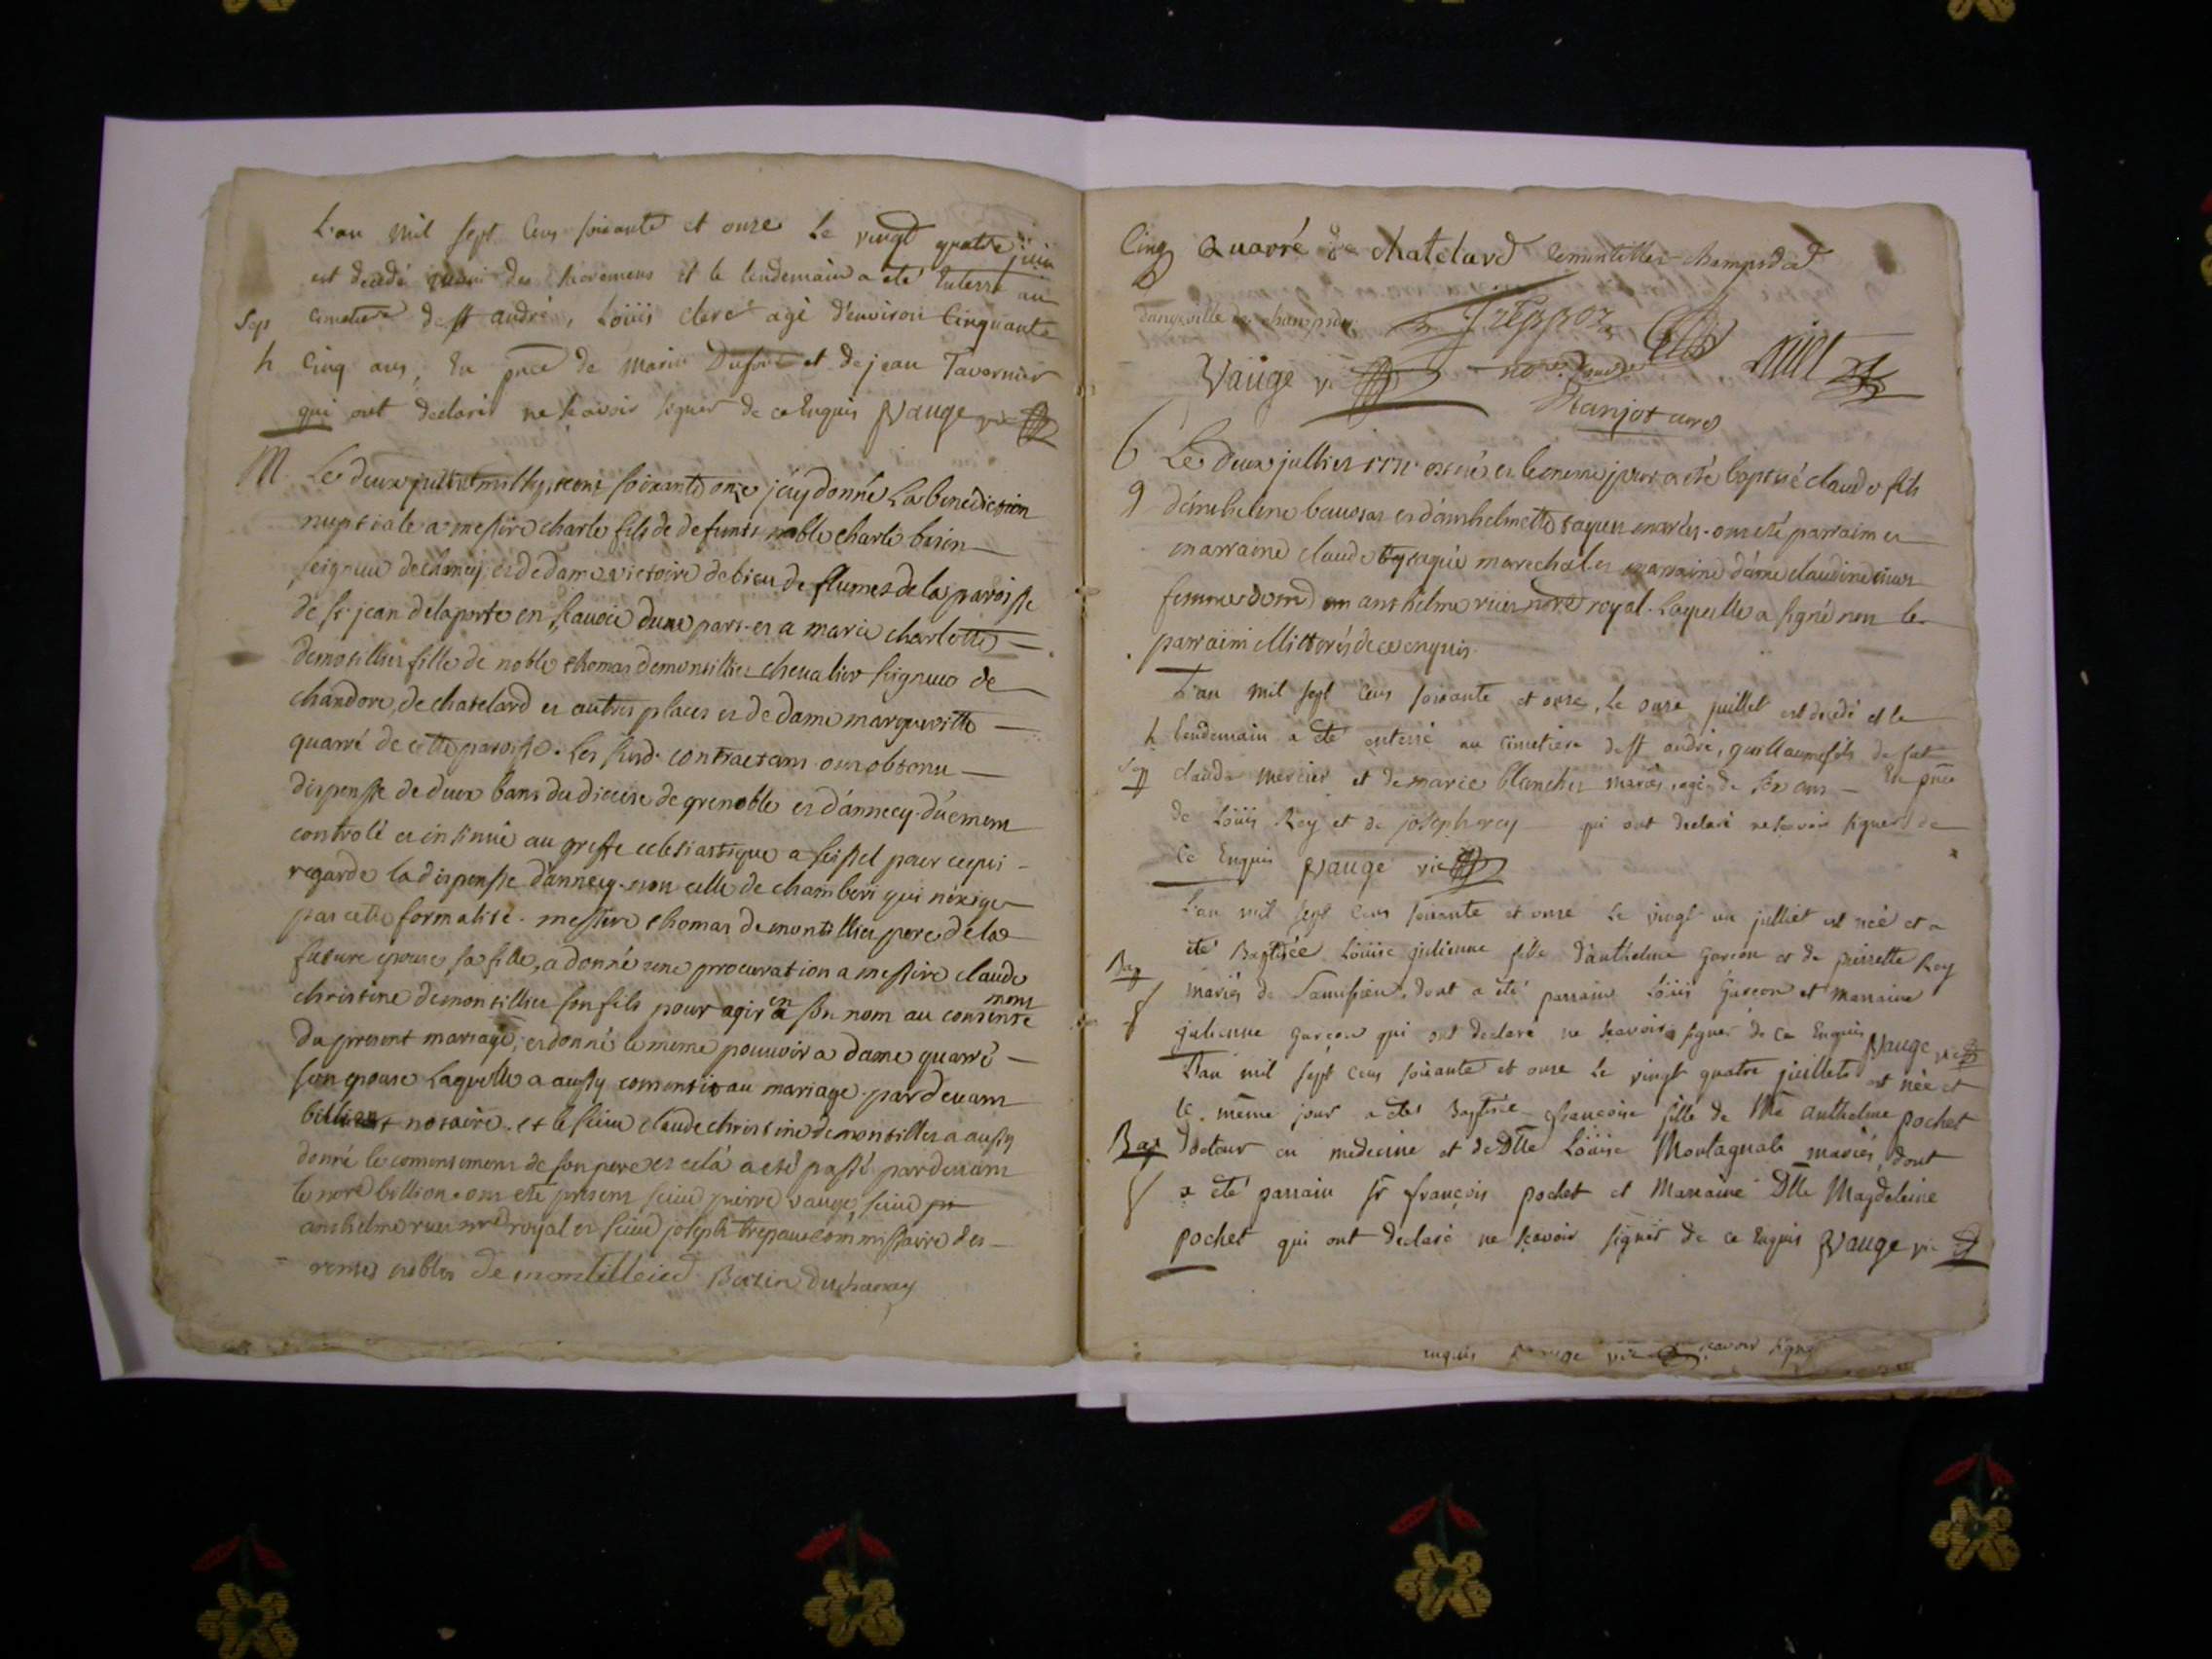 L'an mil sept cens soixante et onze le vingt quatre juin
est decedé muni des sacremens et le lendemain a eté enterré au
Sep cimetiere de st andré, Loüis clerc agé d'environ cinquante
h cinq ans, En pnce de Marin Dufour et de jean Tavernier
qui ont declarés ne scavoir signer de ce Enquis Vauge vic
M Le deux juillet mil sept cent soixante onze j'ay donné La benediction
nuptiale a messire charle fils de defunts noble charle
seigneur de et de dame victoire de de flumet de la paroisse
de st jean de la porte en sauoie dune part et a marie charlotte
demontillier fille de noble thomas demontillier cheualier seigneur de
chandore, de chatelard et autres places et de dame margueritte
quarré de cette paroisse. Les susd. contractans ont obtenu
dispensse de deux bans du diocese de grenoble et d'annecy duement
controlé et insinué au greffe eclesiastique a seissel pour cequi
regarde la dispensse d'annecy non celle de chamberi qui n'exige
pas cette formalité. messire thomas demontillier pere de la
future epouse, sa fille, a donné une procuration a messire claude
christine demontillier son fils pour agir en son nom au consente
ment
du present mariage, et donné le meme pouuoir a dame quarré
son epouse Laquelle a aussy consentit au mariage. pardeuant
billion notaire. et le sieur claude christine demontillier a aussy
donné le consentement de son pere et celà a eté passé pardeuant
le nore billion. ont eté present sieur pierre vauge, sieur
anthelme nore royal et sieur joseph commissaire des
rentes nobles de montilleird
Cinq Quarré de chatelard
Vauge vic
6 Le deux jullier 1771 est né et le meme jour a eté baptisé claude fils
9 d'anthelme et d'anthelmette mariés. ont eté parrain et
marraine claude marechal et marraine dame claudine
femme anthelme nore royal. Laquelle a signé non le
parrain illitteré de ce enquis.
L'an mil sept cens soixante et onze, Le onze juillet est decedé et le
h lendemain a eté enterré au cimetiere de st andré, guillaume fils de
Sep claude mercier et de marie blanchet mariés, agé de six ans — En pnce
de Loüis Rey et de joseph rey qui ont declaré ne scavoir signer de
ce Enquis Vauge vic
L'an mil sept cens soixante et onze Le vingt un julliet est née et a
eté Baptisée Loüise julienne fille d'anthelme Garcon et de pierrette Rey
Bap mariés de dont a eté parrain Loüis Garcon et marraine
f julienne garcon qui ont declaré ne scavoir signer de ce Enquis Vauge vic
L'an mil sept cens soixante et onze Le vingt quatre juillet est née et
le même jour a eté Baptisée francoise fille de Me anthelme pochet
Bap docteur en medecine et de Dlle Loüise Montagnat mariés, dont
f a eté parrain sr françois pochet et Marraine Dlle Magdeleine
pochet qui ont declaré ne scavoir signer de ce Enquis Vauge vic
enquis Vauge vic scavoir signer